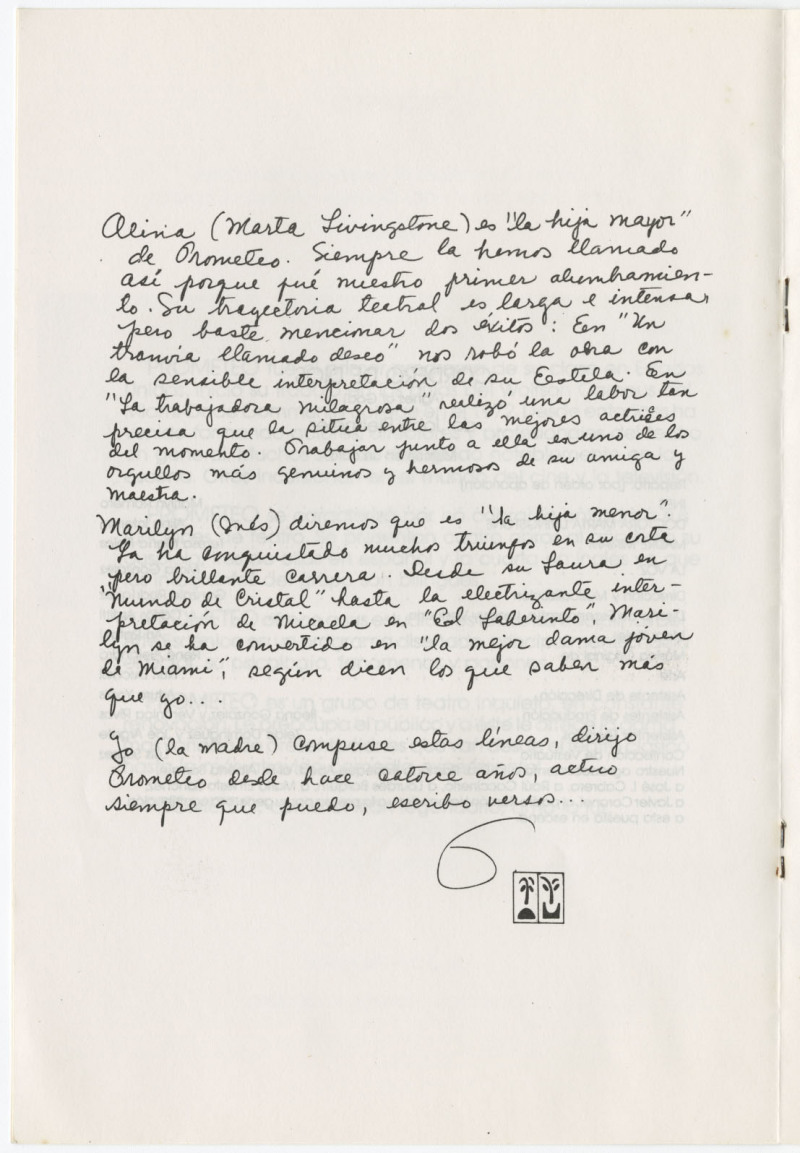 Alina (Marta Livingstone) es "la hija mayor"
de Prometeo. Siempre la hemos llamado
así porque fué nuestro primer alumbramien-
to. Su trayectoria teatral es larga e intensa,
pero baste mencionar dos éxitos: En "Un
tranvía llamado deseo" nos robó la obra con
la sensible interpretación de su Estela. En
"La trabajadora milagrosa" realizó una labor tan
precisa que la situa entre las mejores actrices
del momento. Trabajar junto a ella es uno de los
orgullos más genuinos y hermosos de su amiga y
maestra.
Marilyn (Inés) diremos que es "la hija menor".
Ya ha conquistado muchos triunfos en su corta
pero brillante carrera. Desde su Laura en
"Mundo de Cristal" hasta la electrizante inter-
pretación de Micaela en "El Laberinto", Mari-
lyn se ha convertido en "la mejor dama jóven
de Miami", según dicen los que saber más
que yo...
Yo (la madre) compuse estas líneas, dirijo
Prometeo desde hace catorce años, actuo
siempre que puedo, escribo versos...